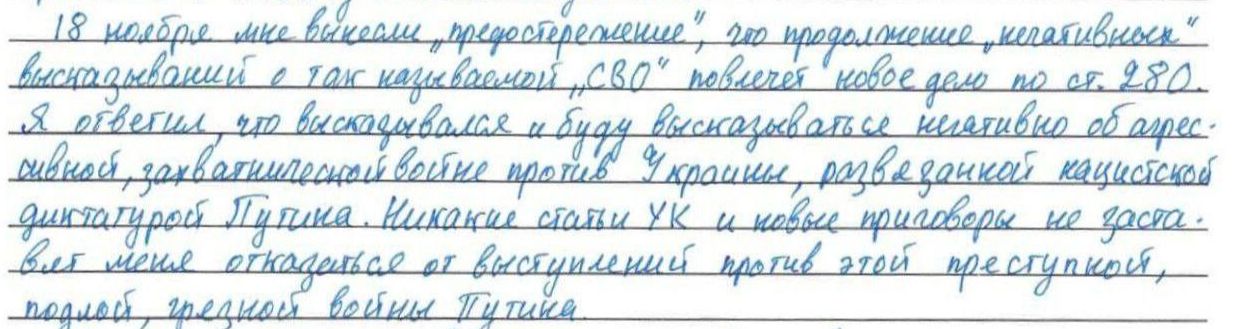 18 ноября мне вынесли „предостережение“, что продолжение „негативных“
высказываний о так называемой „СВО“ повлечёт новое дело по ст. 280.
Я ответил, что высказывался и буду высказываться негативно об агрес-
сивной, захватнической войне против Украины, развязанной нацистской
диктатурой Путина. Никакие статьи УК и новые приговоры не заста-
вят меня отказаться от выступлений против этой преступной,
подлой, грязной войны Путина.